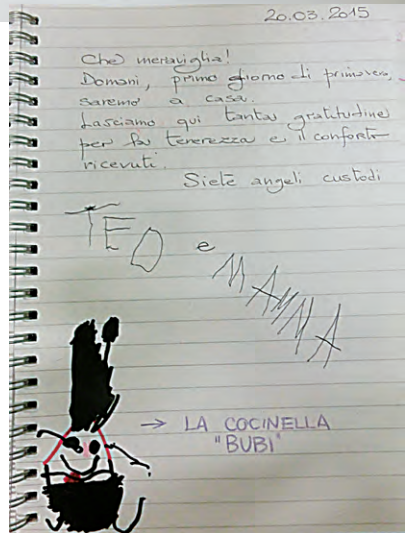 20.03.2015
Che meraviglia!
Domani, primo giorno di primavera,
saremo a casa.
Lasciamo qui tanta gratitudine
per la tenerezza e il conforto
ricevuti.
Siete angeli custodi
TEO e MAMMA
→ LA COCINELLA
"BUBI"